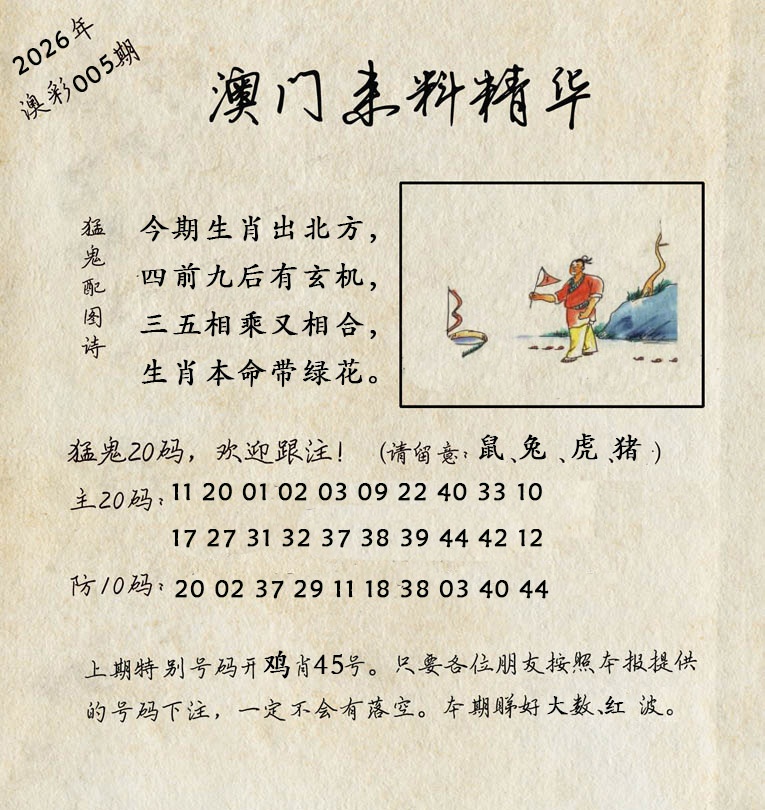 2026年
澳彩005期
澳门来料精华
猛鬼配图诗
今期生肖出北方，
四前九后有玄机，
三五相乘又相合，
生肖本命带绿花。
猛鬼20码，欢迎跟注！（请留意：鼠、兔、虎、猪）
主20码：11 20 01 02 03 09 22 40 33 10
17 27 31 32 37 38 39 44 42 12
防10码：20 02 37 29 11 18 38 03 40 44
上期特别号码开鸡肖45号。只要各位朋友按照本报提供
的号码下注，一定不会有落空。本期睇好大数、红波。